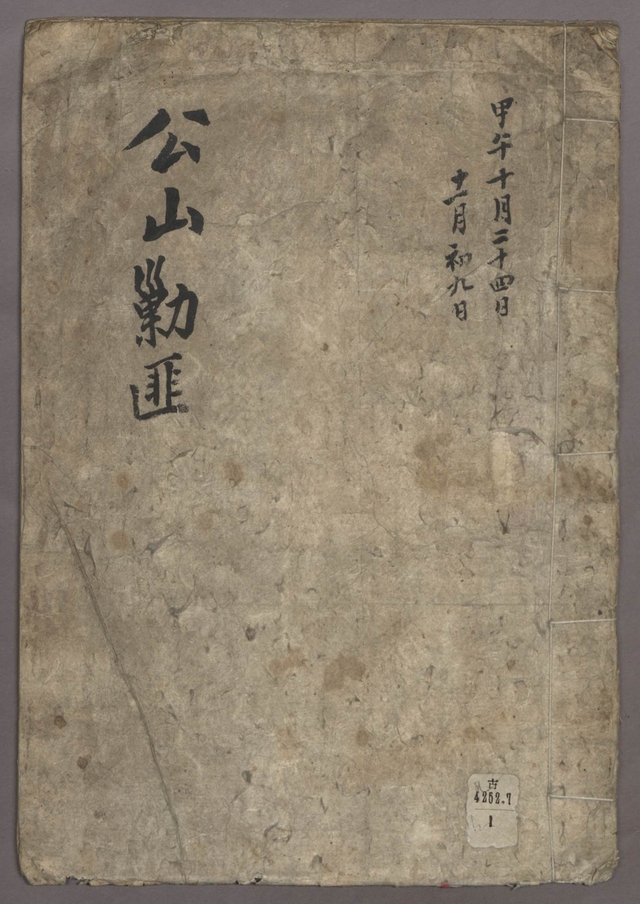 甲午十月二十四日
十一月初九日
公山勦匪
古
4252.7
1